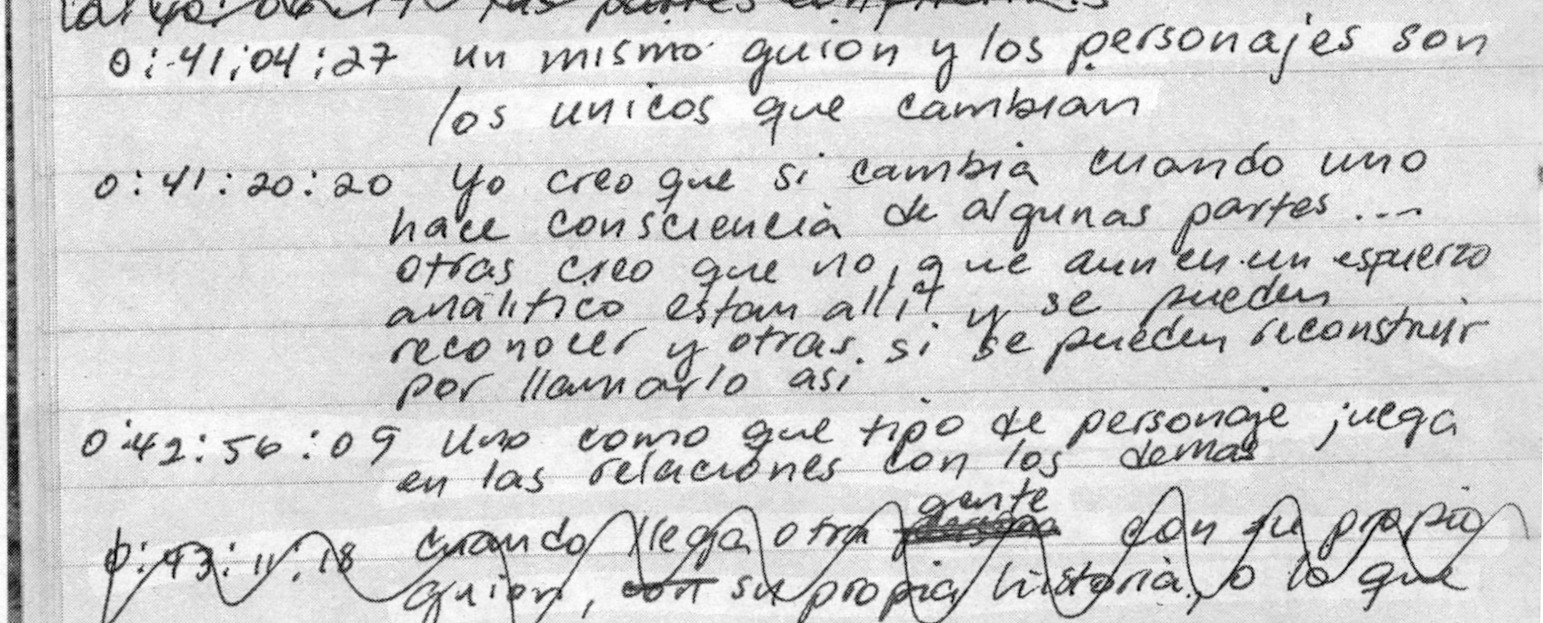 las partes
0:41:04:27 un mismo guion y los personajes son
los unicos que cambian
0:41:20:20 Yo creo que si cambia cuando uno
hace consciencia de algunas partes...
otras creo que no, que aun en un esfuerzo
analitico estan alli y se pueden
reconocer y otras si se pueden reconstruir
por llamarlo asi
0:42:56:09 Uno como que tipo de personaje juega
en las relaciones con los demas
gente
0:43:11:18 cuando llega otra con su propio
guion, con su propia historia, o lo que